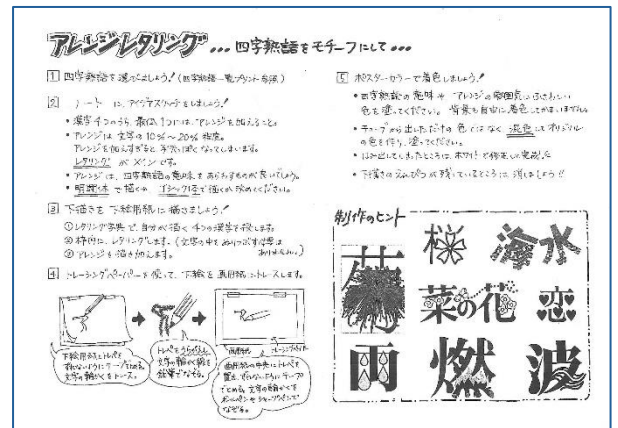 アレンジレタリング
...四字熟語をモチーフにして...
1 四字熟語を選びましょう!(四字熟語一覧プリント参照)
2 ノートに、アイデアスケッチをしましょう!
・漢字4つのうち、最低1つには、アレンジを加えること。
・アレンジは文字の10%〜20%程度。
アレンジを加えすぎると、子供っぽくなってしまいます。
レタリングがメインです。
・アレンジは、四字熟語の意味をあらわすものが良いでしょう。
・明朝体で描くか、ゴシック体で描くか決めてください。
3 下描きを下絵用紙に描きましょう!
①レタリング字典で、自分が描く4つの漢字を探します。
②枠内に、レタリングします。(文字の中をぬりつぶす必要はありません。)
③アレンジを描き加えます。
4 トレーシングペーパーを使って、下絵を画用紙にトレスします。
下絵用紙にトレペを
ずれないようにテープでとめる。
文字の輪かくをトレース。
トレペをうらがえし、
文字の輪かく線を
鉛筆でなぞる。
画用紙
トレーシングペーパー
画用紙の中央にトレペを
置き、ずれないようにテープ
でとめる。文字の輪かくを
ボールペンやシャープペンで
なぞる。
5 ポスターカラーで着色しましょう!
・四字熟語の意味やアレンジの雰囲気にふさわしい
色を塗ってください。背景も自由に着色してかまいません。
・チューブから出しただけの色ではなく、混色してオリジナル
の色を作り、塗ってください。
・はみ出してしまったところは、ホワイトで修正して完成!
・下描きのえんぴつが残っているところは、消しましょう!!
制作のヒント
菊
桜
海水
菜の花
恋
雨
燃
波